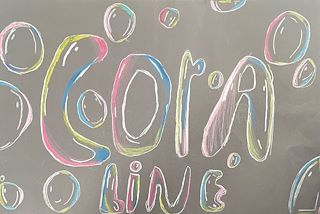 CorA
LiNE